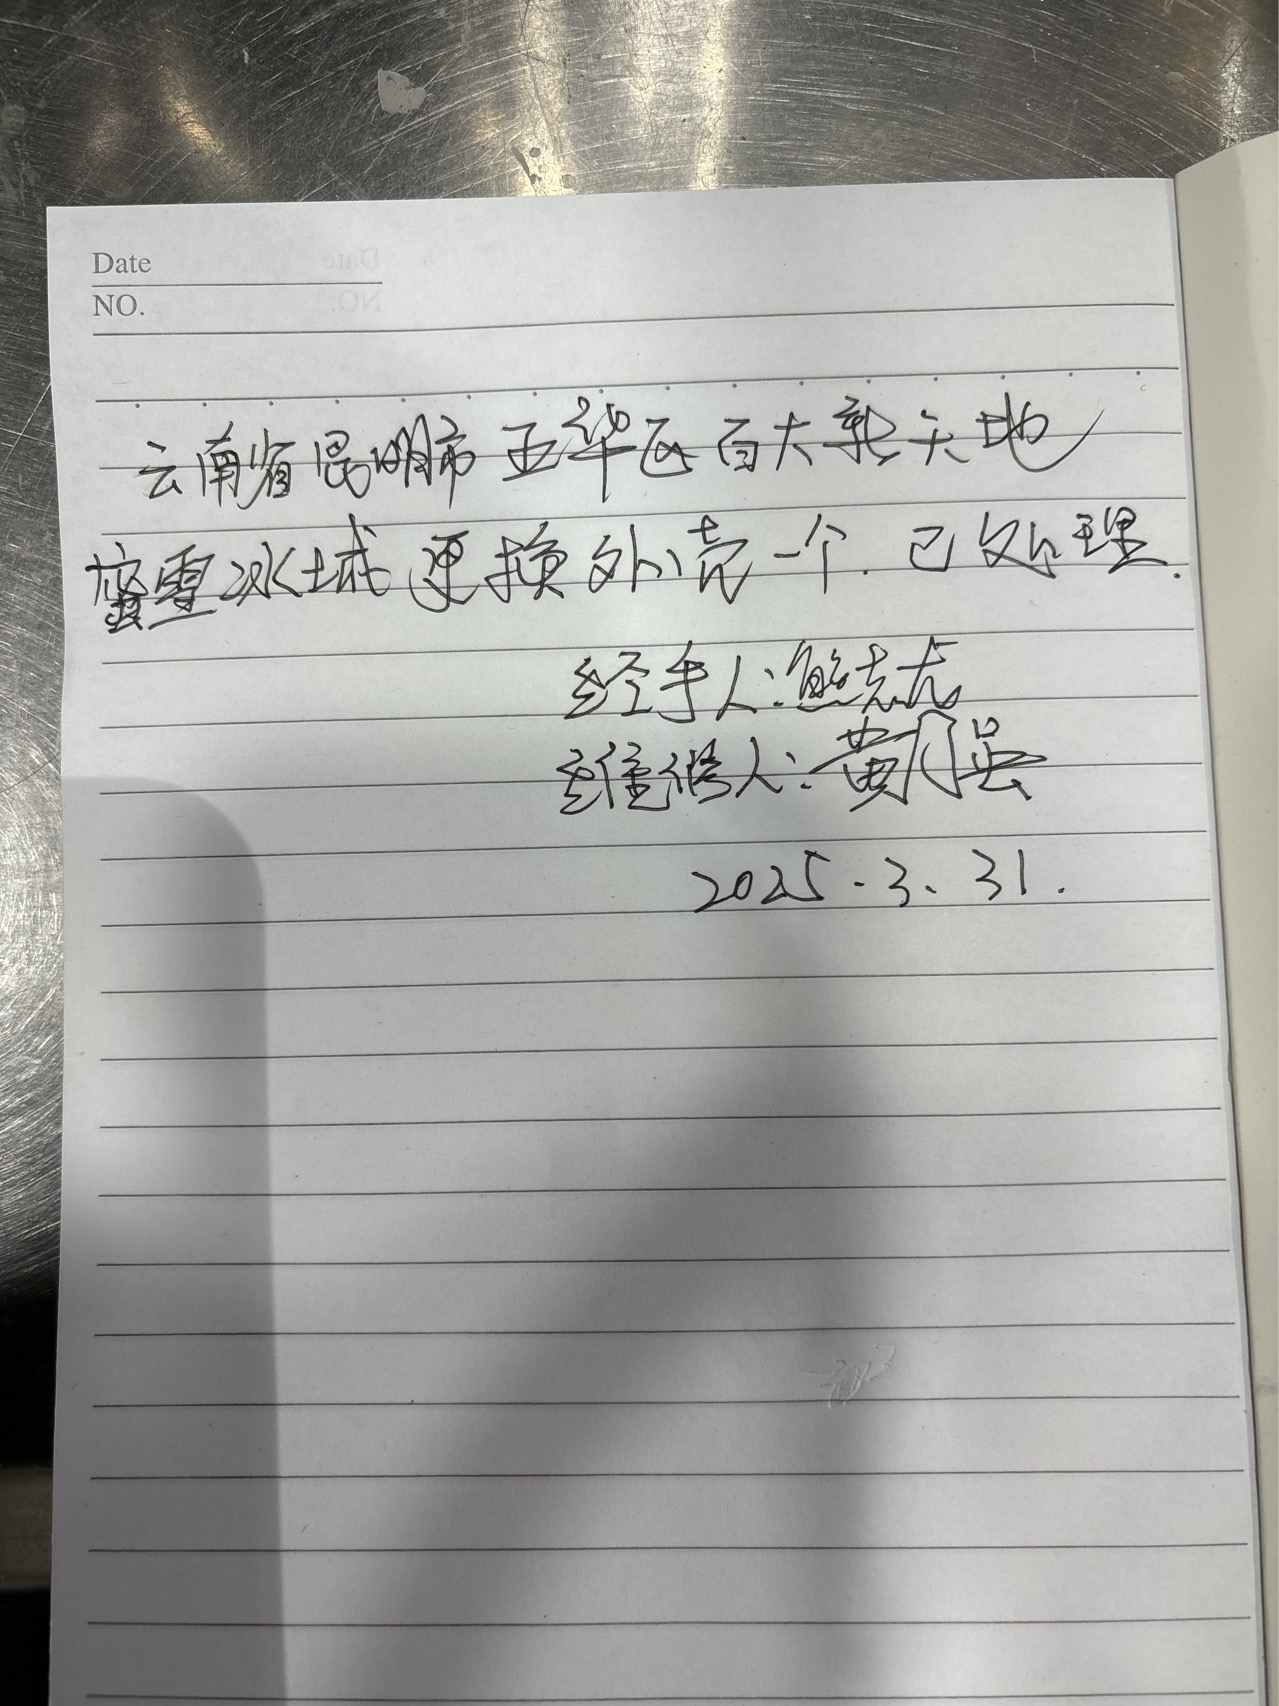 Date
NO.
云南省昆明市五华区百大新天地
蜜雪冰城更换外壳一个.已处理.
经手人:熊志
维修人:黄
2025.3.31.